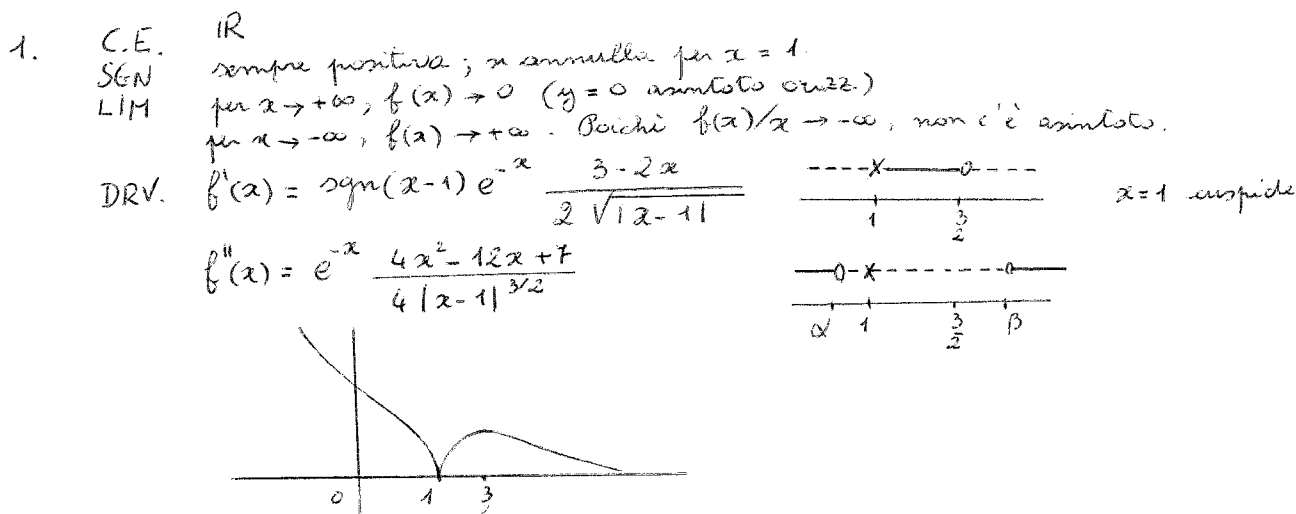 1. C.E. IR
SGN sempre positiva; si annulla per x = 1.
LIM per x → +∞, f(x) → 0 (y = 0 asintoto orizz.)
per x → -∞, f(x) → +∞. Poiché f(x)/x → -∞, non c'è asintoto.
DRV. f'(x) = sgn(x-1) e^{-x} \frac{3-2x}{2\sqrt{|x-1|}} 1 3/2 x=1 cuspide
f''(x) = e^{-x} \frac{4x^2-12x+7}{4|x-1|^{3/2}} α 1 3/2 β
0 1 3